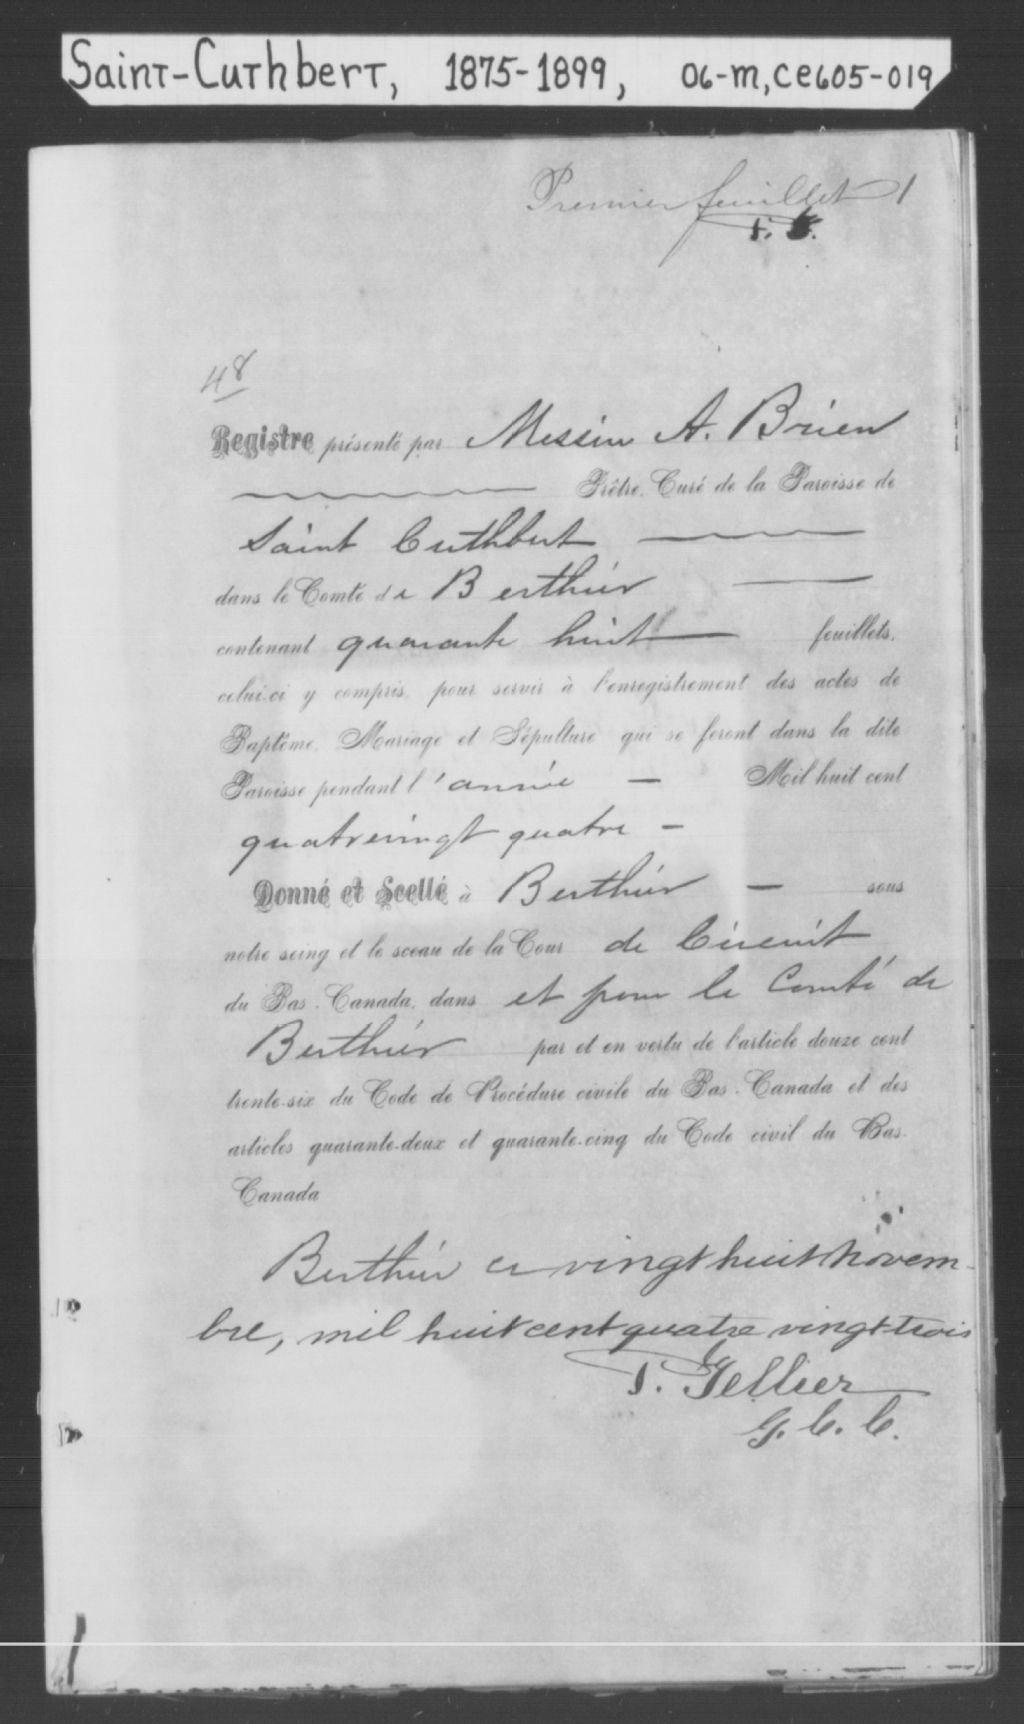 Saint-Cuthbert, 1875-1899, 06-M, CE605-019
Premier feuillet 1
48
Registre présenté par Messire A. Brien
Prêtre, Curé de la Paroisse de
Saint Cuthbert
dans le Comté de Berthier
contenant quarante huit feuillets,
celui-ci y compris, pour servir à l'enregistrement des actes de
Baptême, Mariage et Sépulture qui se feront dans la dite
Paroisse pendant l'année - Mil huit cent
quatrevingt quatre -
Donné et Scellé à Berthier - sous
notre seing et le sceau de la Cour de Circuit
du Bas-Canada, dans et pour le Comté de
Berthier par et en vertu de l'article douze cent
trente-six du Code de Procédure civile du Bas-Canada et des
articles quarante-deux et quarante-cinq du Code civil du Bas-
Canada
Berthier ce vingt huit novem-
bre, mil huit cent quatre vingt trois
Tellier
G. C. C.